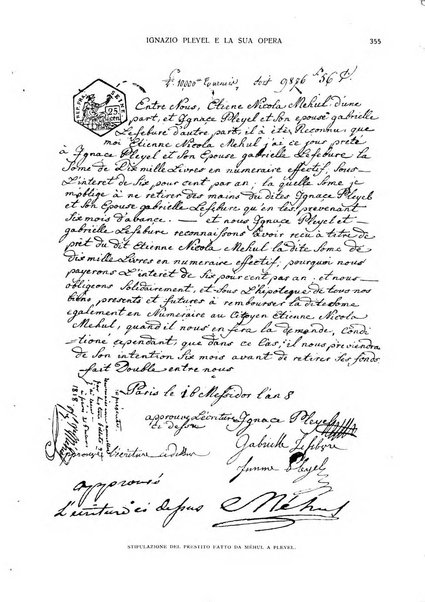 IGNAZIO PLEYEL E LA SUA OPERA
355
10000 Tournois, soit 9876 56
25
CEN
Entre Nous, Etiene Nicola Mehul d'une
part, et Ignace Pleyel et Son epouse gabrielle
Lefebure d'autre part, il à ete Reconnu, que
moi Etienne Nicola Mehul j'ai ce jour prété
à Ignace Pleyel et Son Epouse gabrielle Lefebure la
Some de Dix mille Livres en numeraire effectif, Sous
L'interet de Six pour cent par an; la quelle Some je
m'oblige à ne retirer des mains du dites Ignace Pleyel
et Son Epouse gabrielle Lefebure qu'en les prevenant
Six mois d'avance. — et nous Ignace Pleyel et
gabrielle Lefebure reconnaissons avoir recu à titre de
prét du dit Etienne Nicola Mehul la dite Some de
dix mille Livres en numeraire effectif, pourquoi nous
payerons L'interet de Six pour cent par an. et nous
obligeons Solidairement, et Sous L'hipoteque de tous nos
biens, presents et futures à rembourser la dite Some
egalement en Numeraire au Citoyen Etienne Nicola
Mehul, quand il nous en fera la demande, Condi
tionné cependant, que dans ce Cas, il nous previendra
de Son intention Six mois avant de retirer Ses fonds
fait Double entre nous
Paris le 16 Messidor l'an 8
approuve l'écriture
Ignace Pleyel
Gabrielle Lefebvre
femme Pleyel
approuvé l'écriture ci dessus
approuvé
L'écriture ci dessus
Méhul
STIPULAZIONE DEL PRESTITO FATTO DA MÉHUL A PLEYEL.